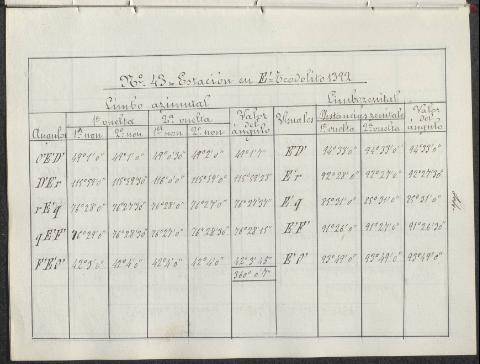 Nº 43 - Estación en E' - Teodolito 1322
Limbo azimutal Limbo zenital
1ª vuelta 2ª vuelta Valor del ángulo Visuales Distancias zenitales Valor del ángulo
Angulos 1er non 2º non 1er non 2º non 1ª vuelta 2ª vuelta
O'E'D' 49°1'0" 49°1'0" 49°0'30" 49°2'0" 49°1'7" E'D' 94°33'0" 94°33'0" 94°33'0"
D'E'r 115°59'0" 115°59'30" 116°0'0" 115°59'0" E'r 92°28'0" 92°27'0" 92°27'30"
rE'q 76°28'0" 76°27'30" 76°28'0" 76°27'0" E'q 85°31'0" 85°31'0" 85°31'0"
qE'F' 76°28'30" 76°27'0" 76°28'30" 76°28'15" E'F' 91°26'0" 91°27'0" 91°26'30"
F'E'O' 42°3'0" 42°4'0" 42°4'0" 42°4'0" 42°3'45" E'O' 93°49'0" 93°49'0" 93°49'0"
360°0'7"